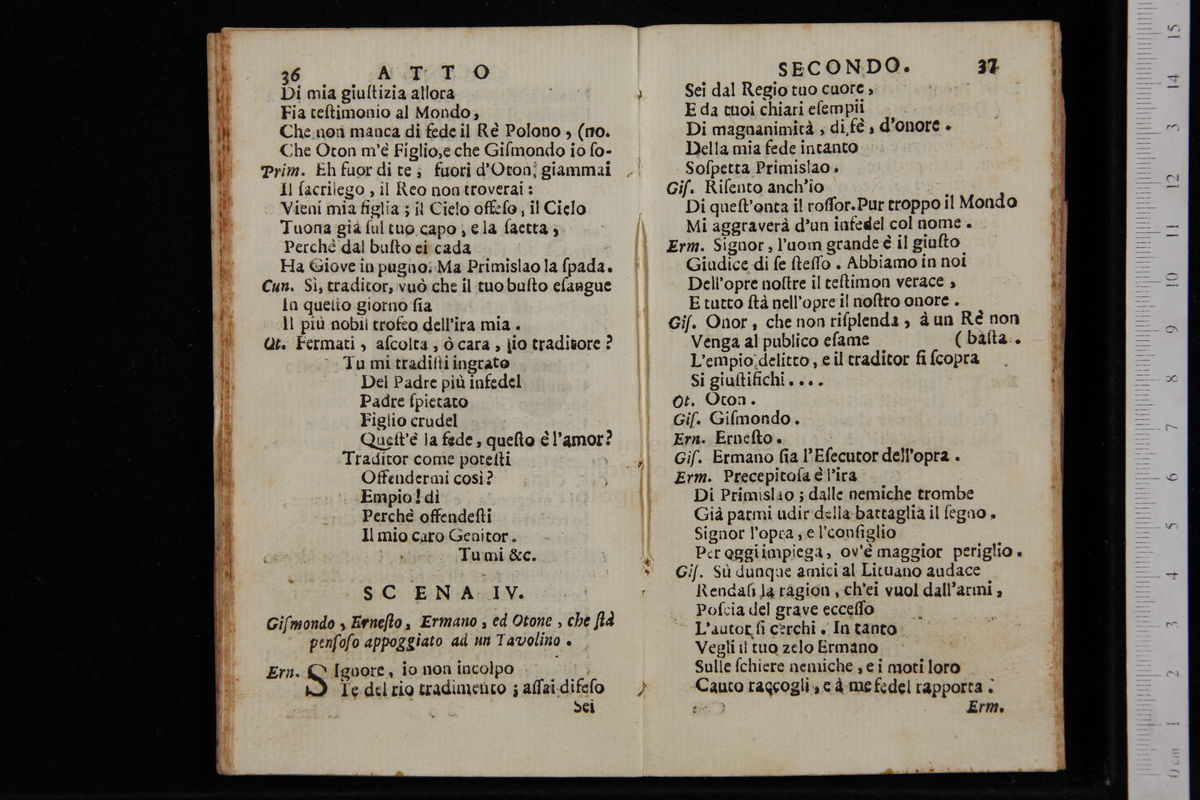 36 ATTO
Di mia giuſtizia allora
Fia teſtimonio al Mondo,
Che non manca di fede il Rè Polono, (no.
Che Oton m'è Figlio,e che Giſmondo io ſo-
Prim. Eh fuor di te, fuori d'Oton, giammai
Il ſacrilego, il Reo non troverai:
Vieni mia figlia; il Cielo offeſo, il Cielo
Tuona già ſul tuo capo, e la ſaetta,
Perchè dal buſto ei cada
Ha Giove in pugno. Ma Primislao la ſpada.
Cun. Sì, traditor, vuò che il tuo buſto eſangue
In queſto giorno ſia
Il più nobil trofeo dell'ira mia.
Ot. Fermati, aſcolta, ò cara, io traditore?
Tu mi tradiſti ingrato
Del Padre più infedel
Padre ſpietato
Figlio crudel
Queſt'è la fede, queſto è l'amor?
Traditor come poteſti
Offendermi così?
Empio! dì
Perchè offendeſti
Il mio caro Genitor.
Tu mi &c.
SCENA IV.
Giſmondo, Erneſto, Ermano, ed Otone, che ſtà
penſoſo appoggiato ad un Tavolino.
Ern. SIgnore, io non incolpo
Te del rio tradimento; aſſai difeſo
Sei
SECONDO. 37
Sei dal Regio tuo cuore,
E da tuoi chiari eſempii
Di magnanimità, di fè, d'onore.
Della mia fede intanto
Soſpetta Primislao.
Giſ. Riſento anch'io
Di queſt'onta il roſſor.Pur troppo il Mondo
Mi aggraverà d'un infedel col nome.
Erm. Signor, l'uom grande è il giuſto
Giudice di ſe ſteſſo. Abbiamo in noi
Dell'opre noſtre il teſtimon verace,
E tutto ſtà nell'opre il noſtro onore.
Giſ. Onor, che non riſplenda, à un Rè non
Venga al publico eſame (baſta.
L'empio delitto, e il traditor ſi ſcopra
Si giuſtifichi....
Ot. Oton.
Giſ. Giſmondo.
Ern. Erneſto.
Giſ. Ermano ſia l'Eſecutor dell'opra.
Erm. Precepitoſa è l'ira
Di Primislao; dalle nemiche trombe
Già parmi udir della battaglia il ſegno.
Signor l'opra, e l'conſiglio
Per oggi impiega, ov'è maggior periglio.
Giſ. Sù dunque amici al Lituano audace
Rendaſi la ragion, ch'ei vuol dall'armi,
Poſcia del grave ecceſſo
L'autor ſi cerchi. In tanto
Vegli il tuo zelo Ermano
Sulle ſchiere nemiche, e i moti loro
Cauto raccogli, e à me fedel rapporta.
Erm.